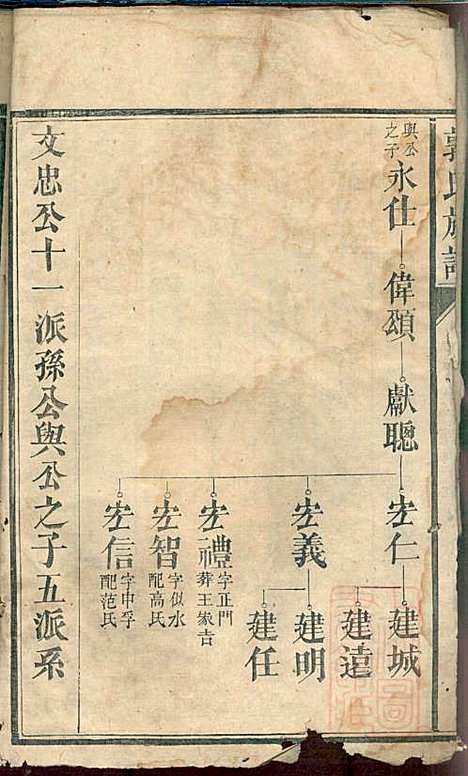 郭氏族譜
與公之子
永仕
偉頌
獻聰
宏仁
建城
建遠
宏義
建明
建任
宏禮
字正門
葬王家吉
宏智
字似水
配高氏
宏信
字中孚
配范氏
文忠公十一派孫公與公之子五派系